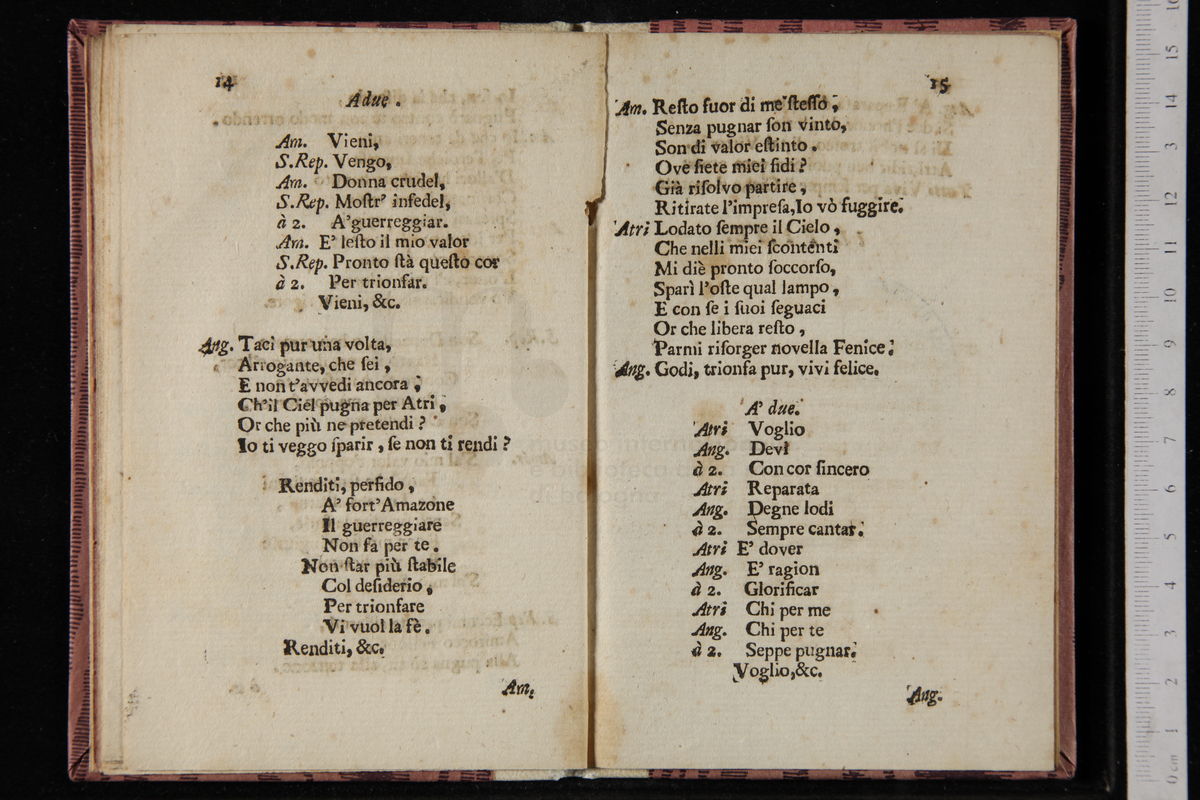 14
A due.
Am. Vieni,
S.Rep. Vengo,
Am. Donna crudel,
S.Rep. Moſtr' infedel,
à 2. A'guerreggiar.
Am. E' leſto il mio valor
S.Rep. Pronto ſtà queſto cor
à 2. Per trionfar.
Vieni, &c.
Ang. Taci pur una volta,
Arrogante, che ſei,
E non t'avvedi ancora;
Ch'il Ciel pugna per Atri,
Or che più ne pretendi?
Io ti veggo ſparir, ſe non ti rendi?
Renditi, perfido,
A' fort'Amazone
Il guerreggiare
Non fa per te.
Non ſtar più ſtabile
Col deſiderio,
Per trionfare
Vi vuol la fè.
Renditi, &c.
Am.
15
Am. Reſto fuor di me ſteſſo;
Senza pugnar ſon vinto,
Son di valor eſtinto.
Ove ſiete miei fidi?
Già riſolvo partire,
Ritirate l'impreſa, Io vò fuggire.
Atri Lodato ſempre il Cielo,
Che nelli miei ſcontenti
Mi diè pronto ſoccorſo,
Sparì l'oſte qual lampo,
E con ſe i ſuoi ſeguaci
Or che libera reſto,
Parmi riſorger novella Fenice;
Ang. Godi, trionfa pur, vivi felice.
A' due.
Atri Voglio
Ang. Devi
à 2. Con cor ſincero
Atri Reparata
Ang. Degne lodi
à 2. Sempre cantar.
Atri E' dover
Ang. E' ragion
à 2. Glorificar
Atri Chi per me
Ang. Chi per te
à 2. Seppe pugnar.
Voglio, &c.
Ang.